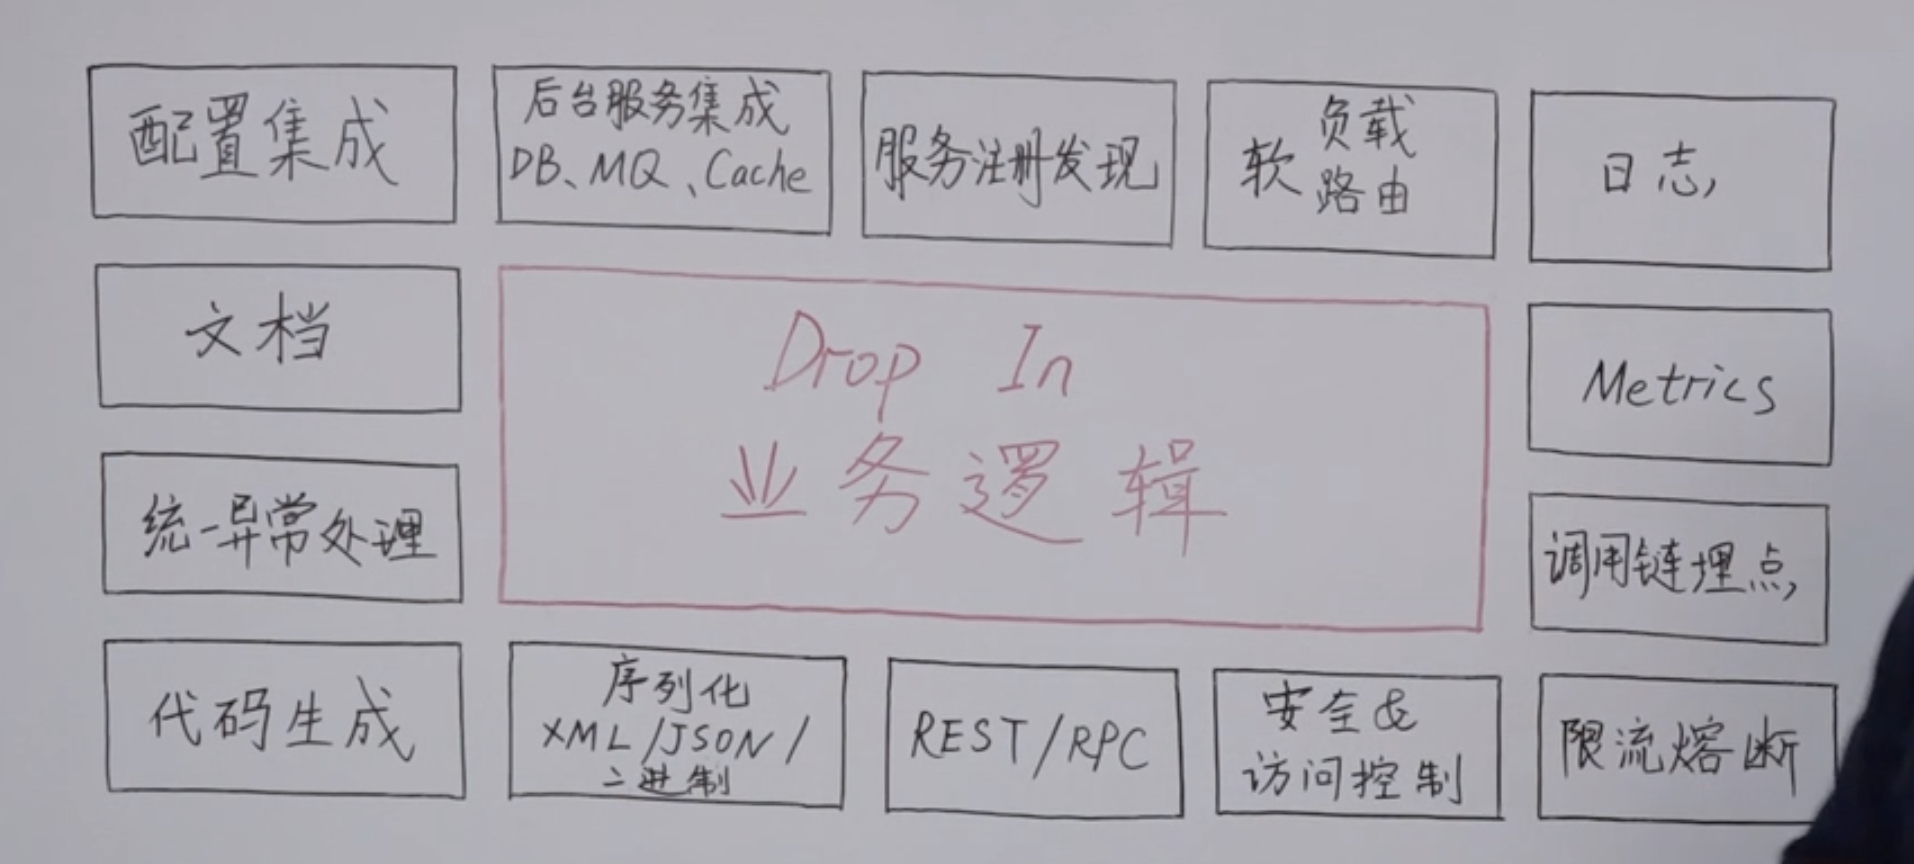 配置集成
后台服务集成
DB、MQ、Cache
服务注册发现
软
负载
路由
日志
文档
Drop In
业务逻辑
Metrics
统一异常处理
调用链埋点
代码生成
序列化
XML/JSON/
二进制
REST/RPC
安全&
访问控制
限流熔断